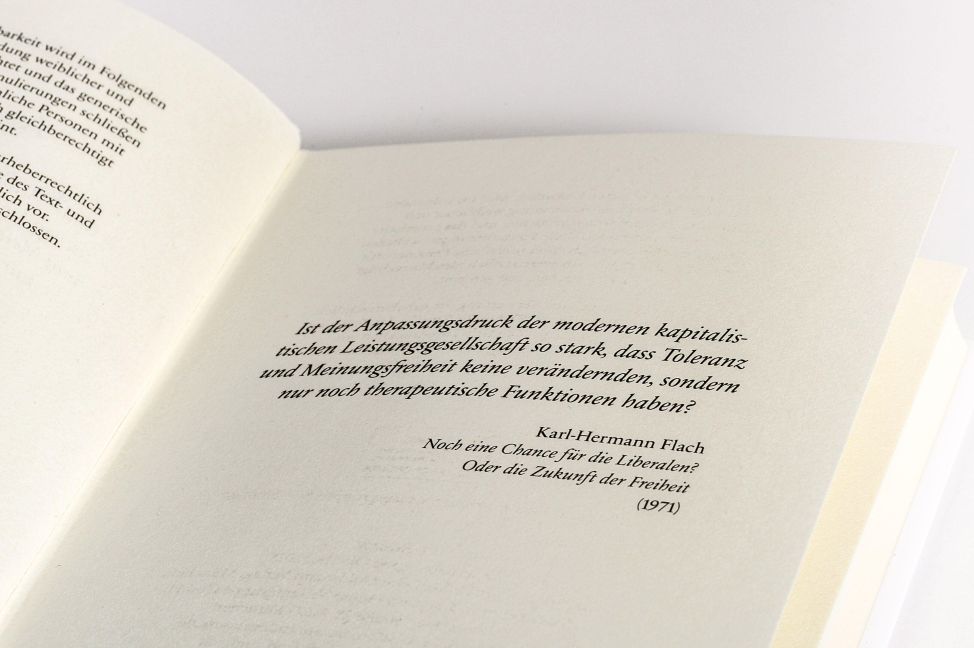 barkeit wird im Folgenden
weiblicher und
und das generische
schließen
Personen mit
gleichberechtigt
des Text- und
vor.
Ist der Anpassungsdruck der modernen kapitalis-
tischen Leistungsgesellschaft so stark, dass Toleranz
und Meinungsfreiheit keine verändernden, sondern
nur noch therapeutische Funktionen haben?
Karl-Hermann Flach
Noch eine Chance für die Liberalen?
Oder die Zukunft der Freiheit
(1971)